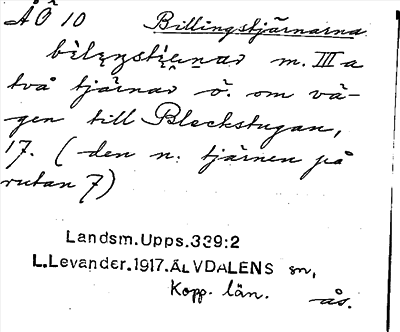 ÅÖ 10 Billingstjärnarna
m. III a
två tjärnar ö. om vä-
gen till Bleckstugan,
17. (den n: tjärnen på
rutan 7)
Landsm.Upps.339:2
L.Levander.1917.ÄLVDALENS sn,
Kopp. län.
ås.